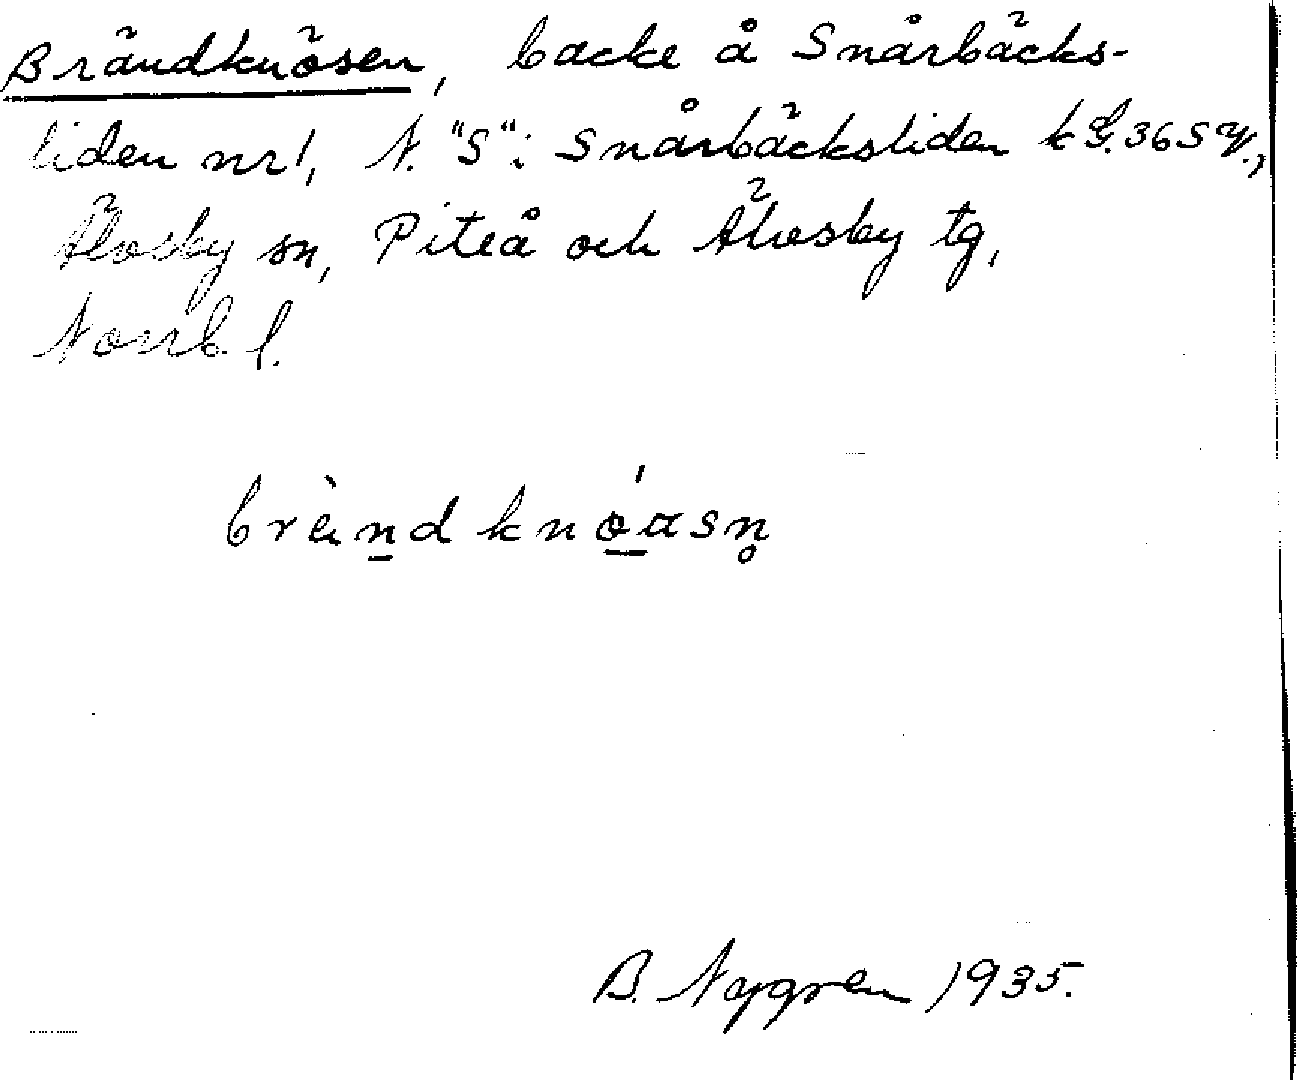 Brändknösen, backe å Snårbäcks-
liden nr 1, N. "S": Snårbäcksliden k G.36 S y.,
Älvsby sn, Piteå och Älvsby tg,
Norrb l.
brèndknöasn̥
B. Nygren 1935.